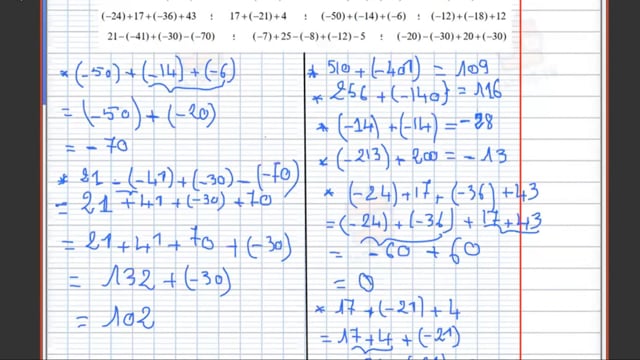 (−24)+17+(−36)+43 : 17+(−21)+4 : (−50)+(−14)+(−6) : (−12)+(−18)+12
21−(−41)+(−30)−(−70) : (−7)+25−(−8)+(−12)−5 : (−20)−(−30)+20+(−30)
* (-50) + (-14) + (-6)
= (-50) + (-20)
= - 70
* 21 - (-41) + (-30) - (-70)
= 21 + 41 + (-30) + 70
= 21 + 41 + 70 + (-30)
= 132 + (-30)
= 102
* 510 + (-401) = 109
* 256 + (-140) = 116
* (-14) + (-14) = -28
* (-213) + 200 = - 13
* (-24) + 17 + (-36) + 43
= (-24) + (-36) + 17 + 43
= - 60 + 60
= 0
* 17 + (-21) + 4
= 17 + 4 + (-21)